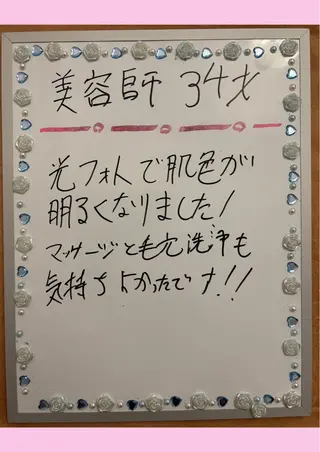 美容師 34才
光フォトで肌色が
明るくなりました!
マッサージと毛穴洗浄も
気持ちよかったです!!